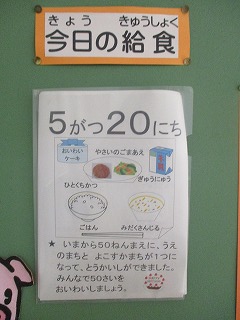 きょう きゅうしょく
今日の給食
5がつ20にち
おいわい
ケーキ
やさいのごまあえ
ぎゅうにゅう
ひとくちかつ
ごはん
みだくさんじる
★ いまから50ねんまえに、うえ
のまちと よこすかまちが1つに
なって、とうかいしができました。
みんなで50さいを
おいわいしましょう。